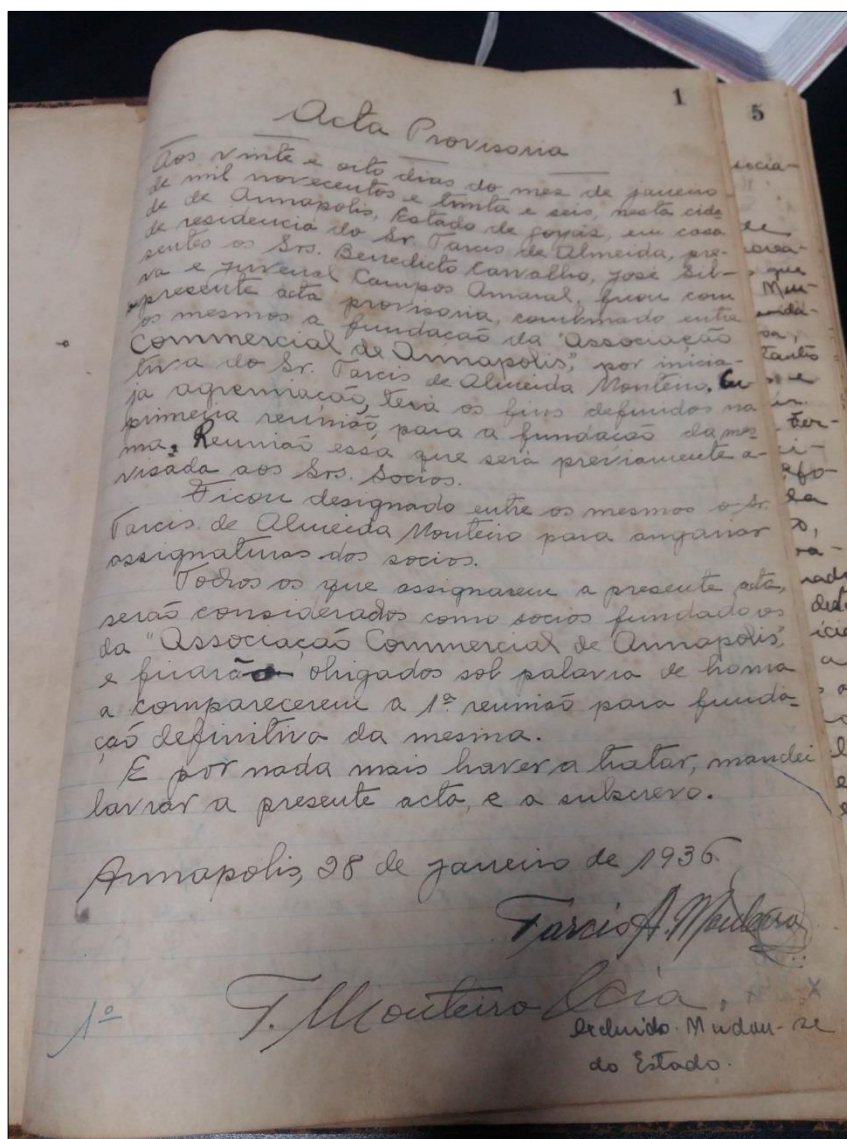 1
5
Acta Provisoria
Aos vinte e oito dias do mez de janeiro
de mil novecentos e trinta e seis, nesta cida
de de Annapolis, Estado de Goyaz, em casa
de residencia do Sr. Tarcis de Almeida, pre-
sentes os Srs. Benedicto Carvalho, José Sil-
va e Juvenal Campos Amaral, ficou com
presente acta provisoria, combinado entre
os mesmos a fundação da "Associação
Commercial de Annapolis", por inicia-
tiva do Sr. Tarcis de Almeida Monteiro. Cu
ja agremiação, terá os fins definidos na
primeira reunião, para a fundação da mes
ma. Reunião essa que será previamente a-
visada aos Srs. Socios.
Ficou designado entre os mesmos o Sr.
Tarcis de Almeida Monteiro para angariar
assignaturas dos socios.
Todos os que assignarem a presente acta,
serão considerados como socios fundadores
da "Associação Commercial de Annapolis",
e ficarão obrigados sob palavra de honra
a comparecerem a 1ª reunião para funda-
ção definitiva da mesma.
E por nada mais haver a tratar, mandei
lavrar a presente acta, e a subscrevo.
Annapolis, 28 de janeiro de 1936.
Tarcis A. Monteiro
1º T. Monteiro & Cia.
Excluido. Mudou-se
do Estado.